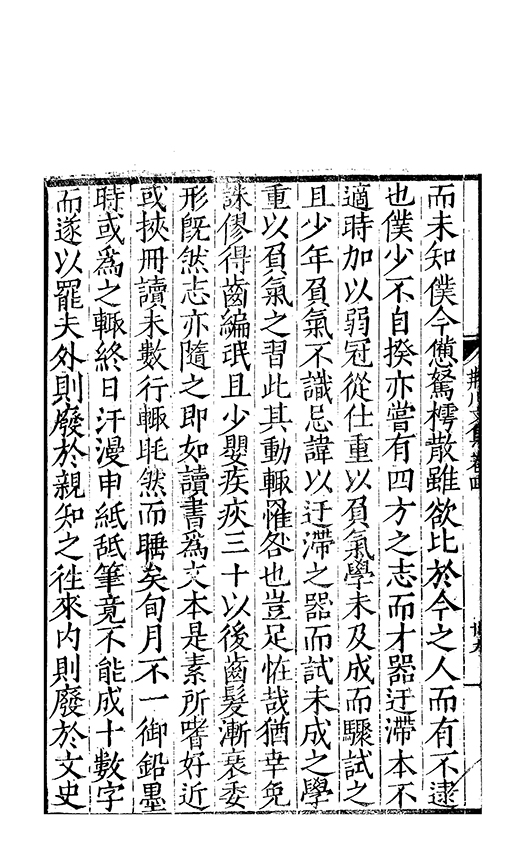 而未知僕今憊駑樗散雖欲比於今之人而有不逮
也僕少不自揆亦嘗有四方之志而才器迂滯本不
適時加以弱冠從仕重以負氣學未及成而驟試之
且少年負氣不識忌諱以迂滯之器而試未成之學
重以負氣之習此其動輒罹咎也豈足恠哉猶幸免
誅僇得齒編珉且少嬰疾疢三十以後齒髮漸衰委
形旣然志亦隨之即如讀書爲文本是素所嗜好近
或挾冊讀未數行輒眊然而睡矣旬月不一御鉛墨
時或爲之輒終日汗漫申紙舐筆竟不能成十數字
而遂以罷夫外則廢於親知之徃來內則廢於文史
荆川文集卷四